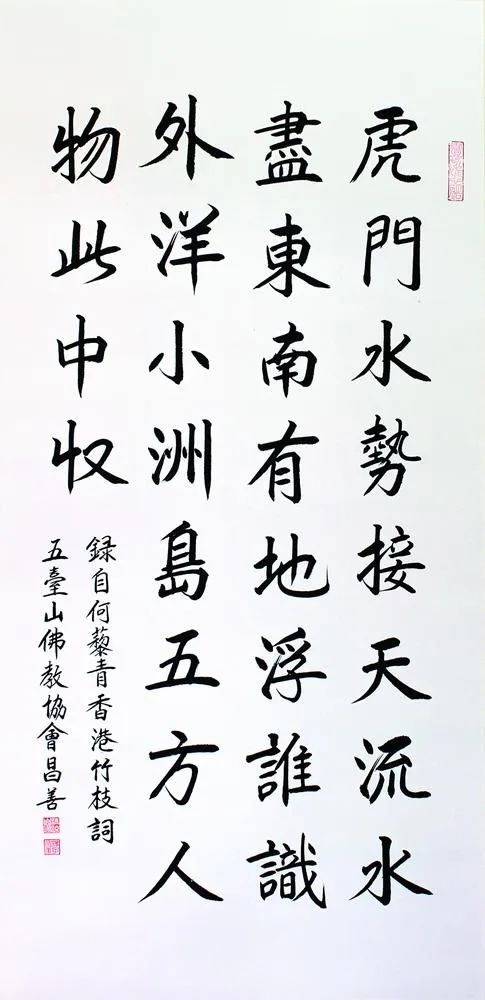 虎門水勢接天流水
盡東南有地浮誰識
外洋小洲島五方人
物此中収
録自何藜青香港竹枝詞
五臺山佛教協會昌善